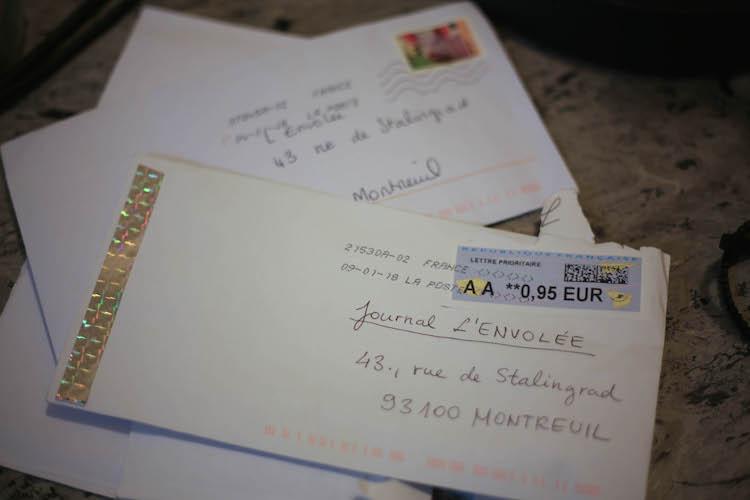 FRANCE
LA POSTE
L'Envolée
43 rue de Stalingrad
Montreuil
RÉPUBLIQUE FRANÇAISE
LETTRE PRIORITAIRE
AA **0,95 EUR
21530A-02 FRANCE
09-01-18 LA POSTE
Journal L'ENVOLÉE
43., rue de Stalingrad
93100 MONTREUIL